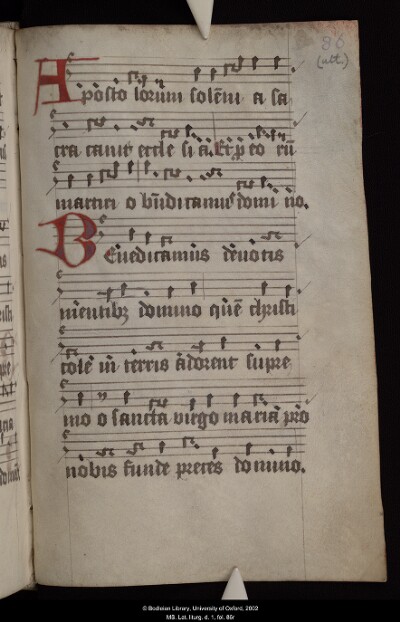 86
(ult.)
Aposto lorum solēni a sa
cra canit eccle si a. Et p eo rū
martiri o bn̄dicamus domi no.
Benedicamus deuotis
mentibȝ domino quē christi
colē in terris adorent supre
mo o sancta virgo maria pro
nobis funde preces domino.
© Bodleian Library, University of Oxford, 2002
MS. Lat. liturg. d. 1, fol. 86r